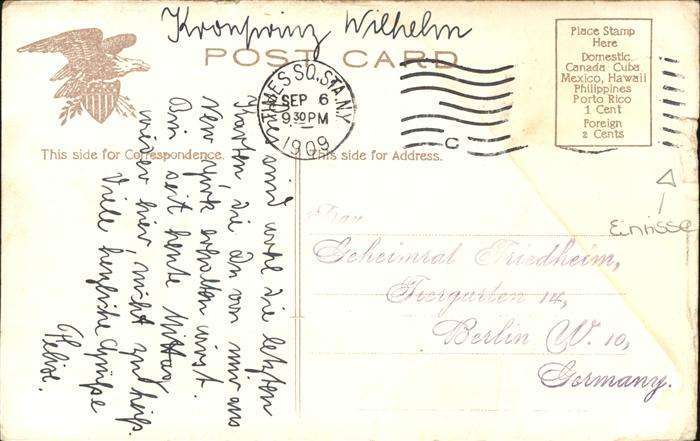 Kronprinz Wilhelm
POST CARD
Place Stamp
Here
Domestic
Canada Cuba
Mexico, Hawaii
Philippines
Porto Rico
1 Cent
Foreign
2 Cents
TIMES SQ. STA. N.Y.
SEP 6
9 30 PM
1909
C
This side for Correspondence.
This side for Address.
Dies sind wohl die letzten
Karten, die Du von mir aus
New York erhalten wirst.
Bin seit heute Mittag
wieder hier, nicht zu heiß.
Viele herzliche Grüße
Frau
Geheimrat Friedheim,
Tiergarten 14,
Berlin W. 10,
Germany.
Einrisse